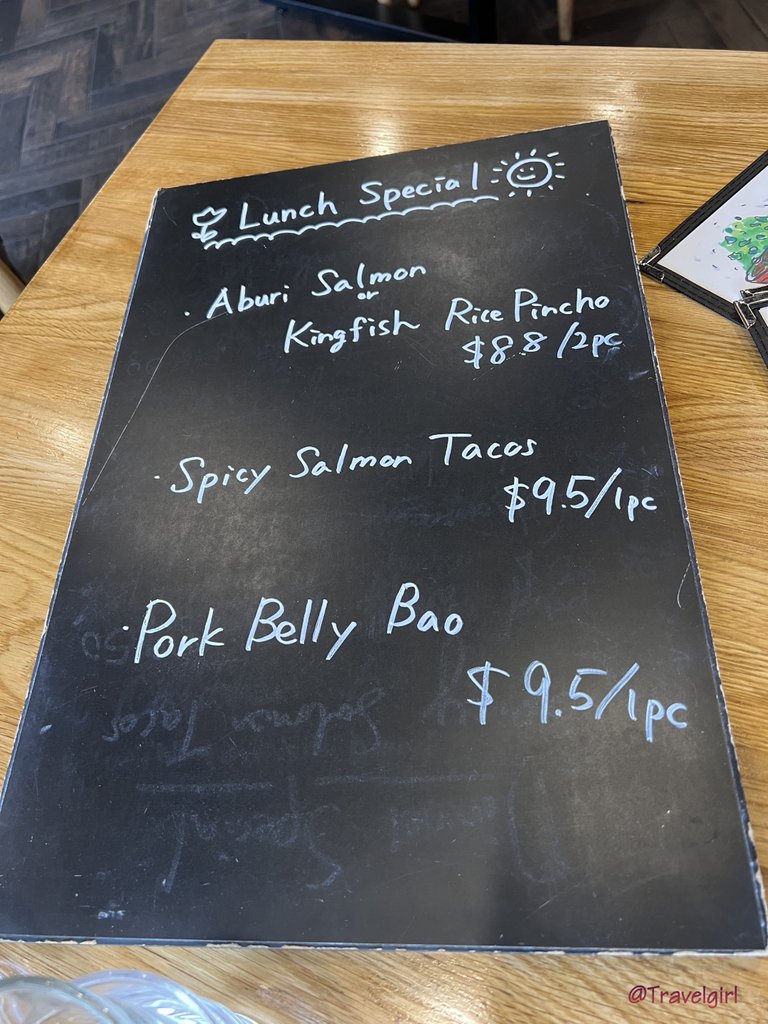 Lunch Special
· Aburi Salmon
or
Kingfish Rice Pincho
$8.8/2pc
· Spicy Salmon Tacos
$9.5/1pc
· Pork Belly Bao
$9.5/1pc
Salmon Tacos
@Travelgirl